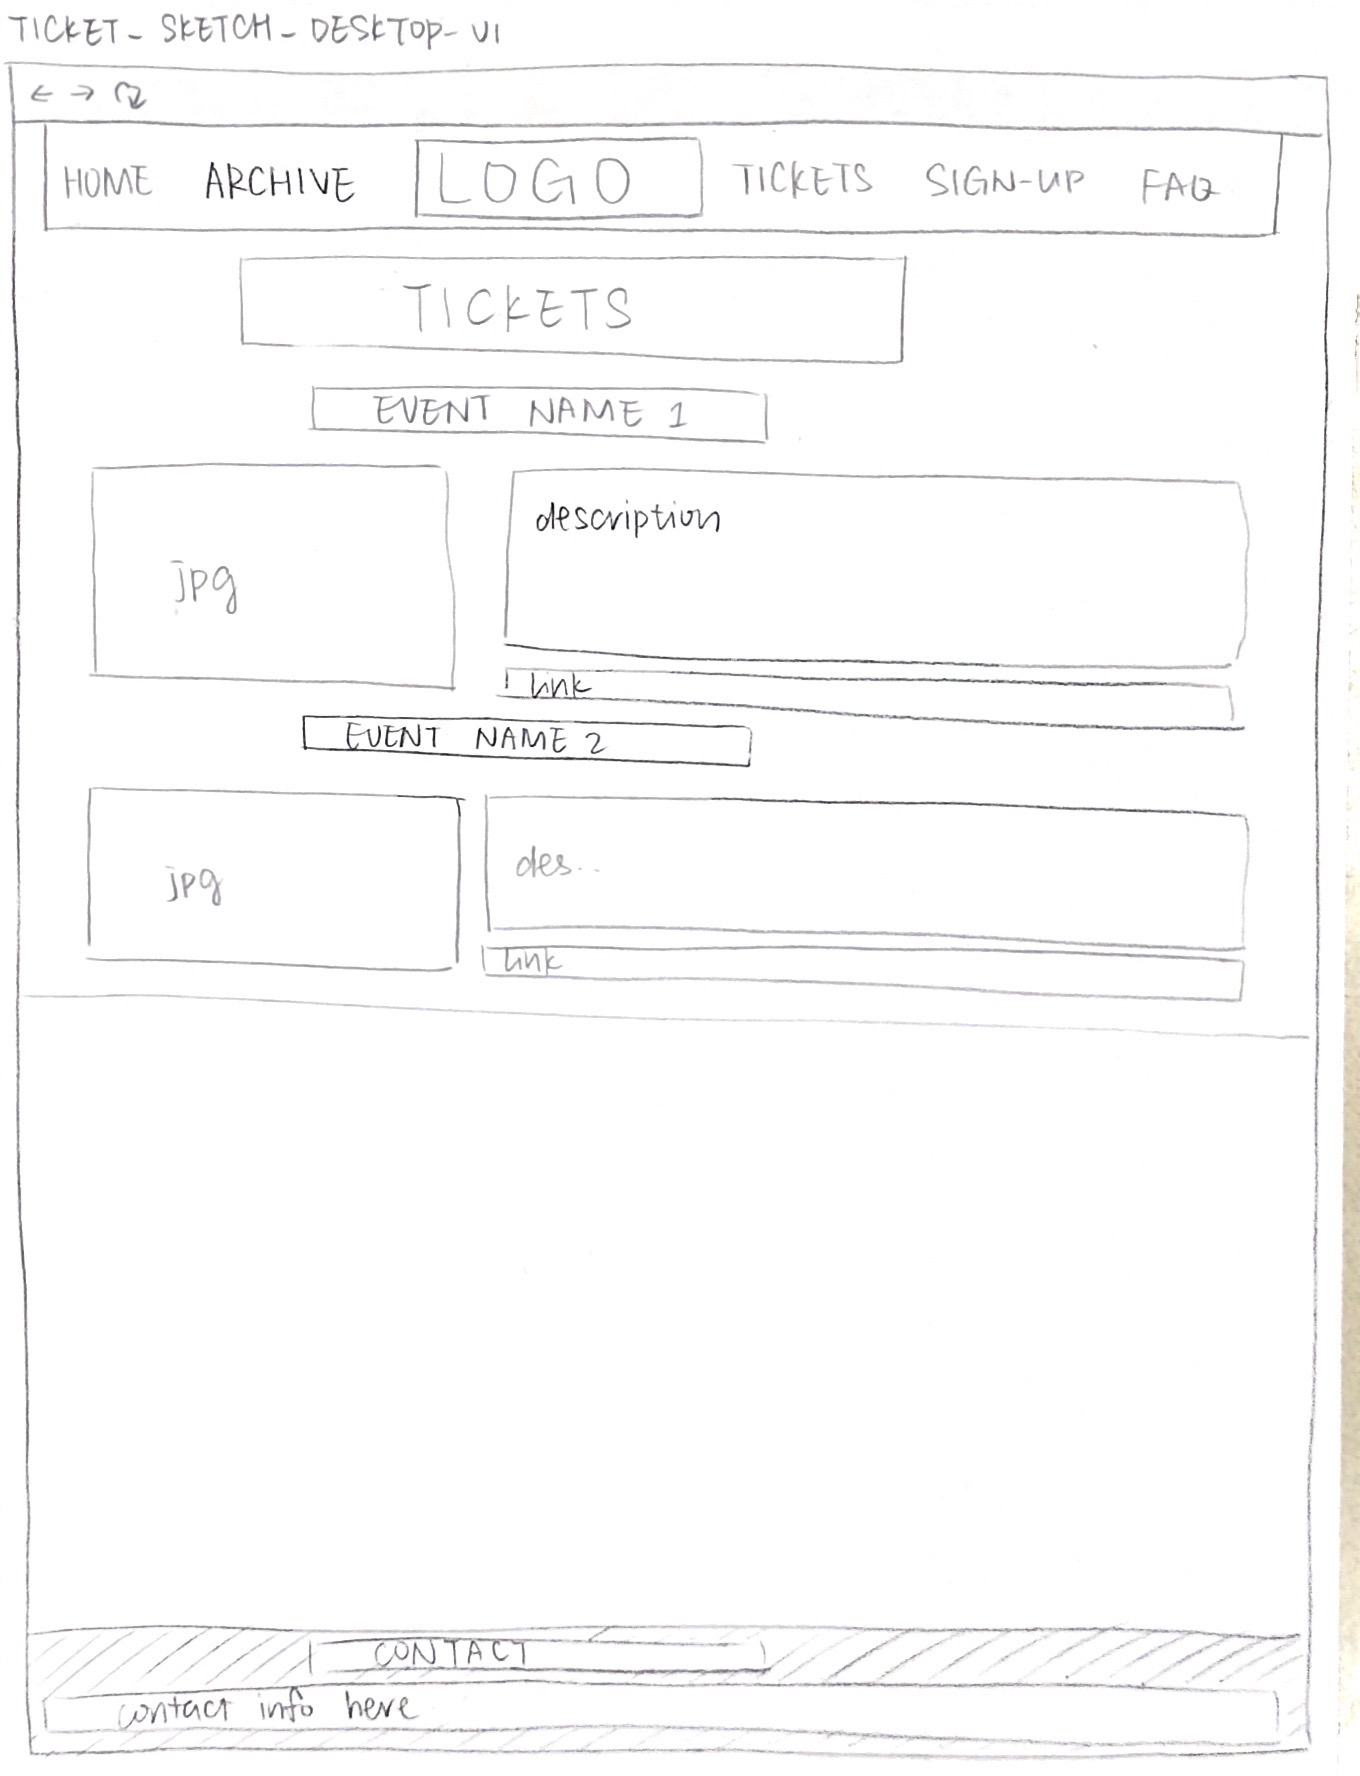 TICKET_SKETCH_DESKTOP_V1
HOME ARCHIVE LOGO TICKETS SIGN-UP FAQ
TICKETS
EVENT NAME 1
jpg
description
link
EVENT NAME 2
jpg
des..
link
CONTACT
contact info here